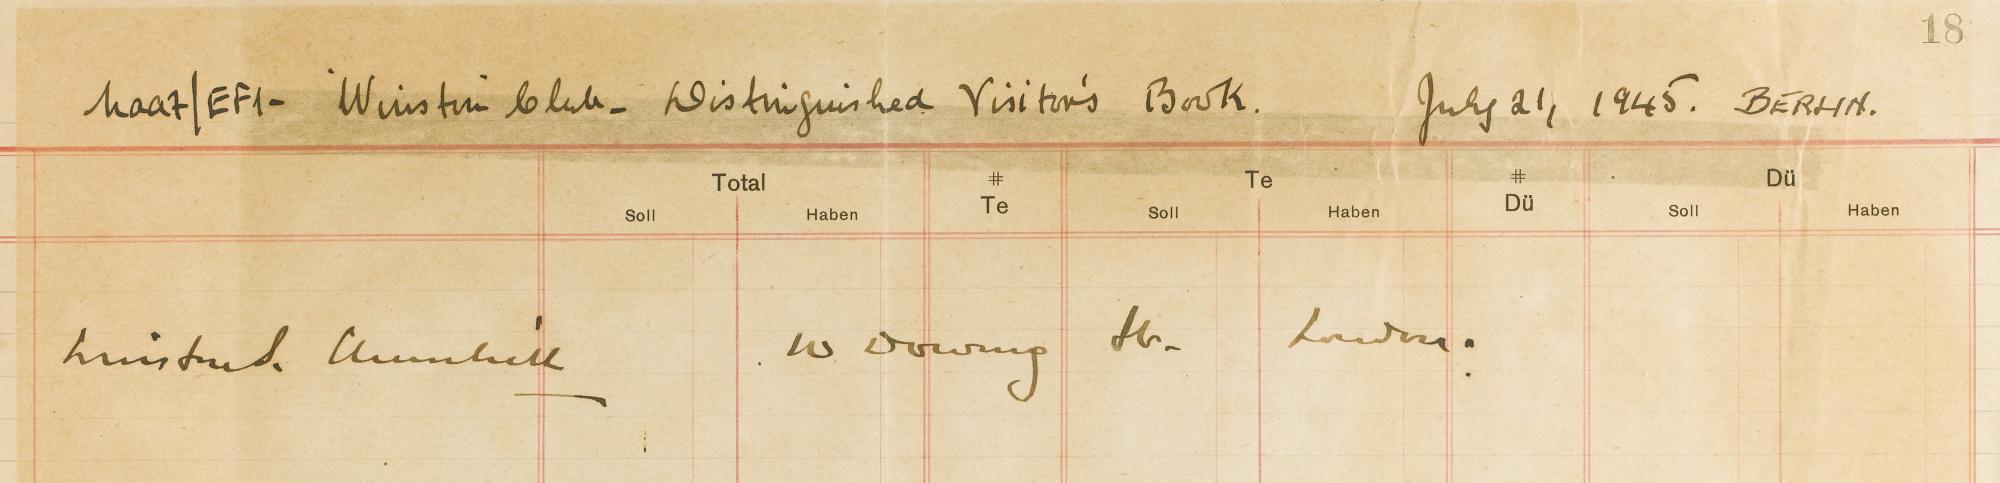 18
Naafi/EFI- 'Winston Club- Distinguished Visitor's Book. July 21, 1945. BERLIN.
Total # Te # Dü
Te Dü
Soll Haben Soll Haben Soll Haben
Winston S. Churchill 10 Downing St. London.